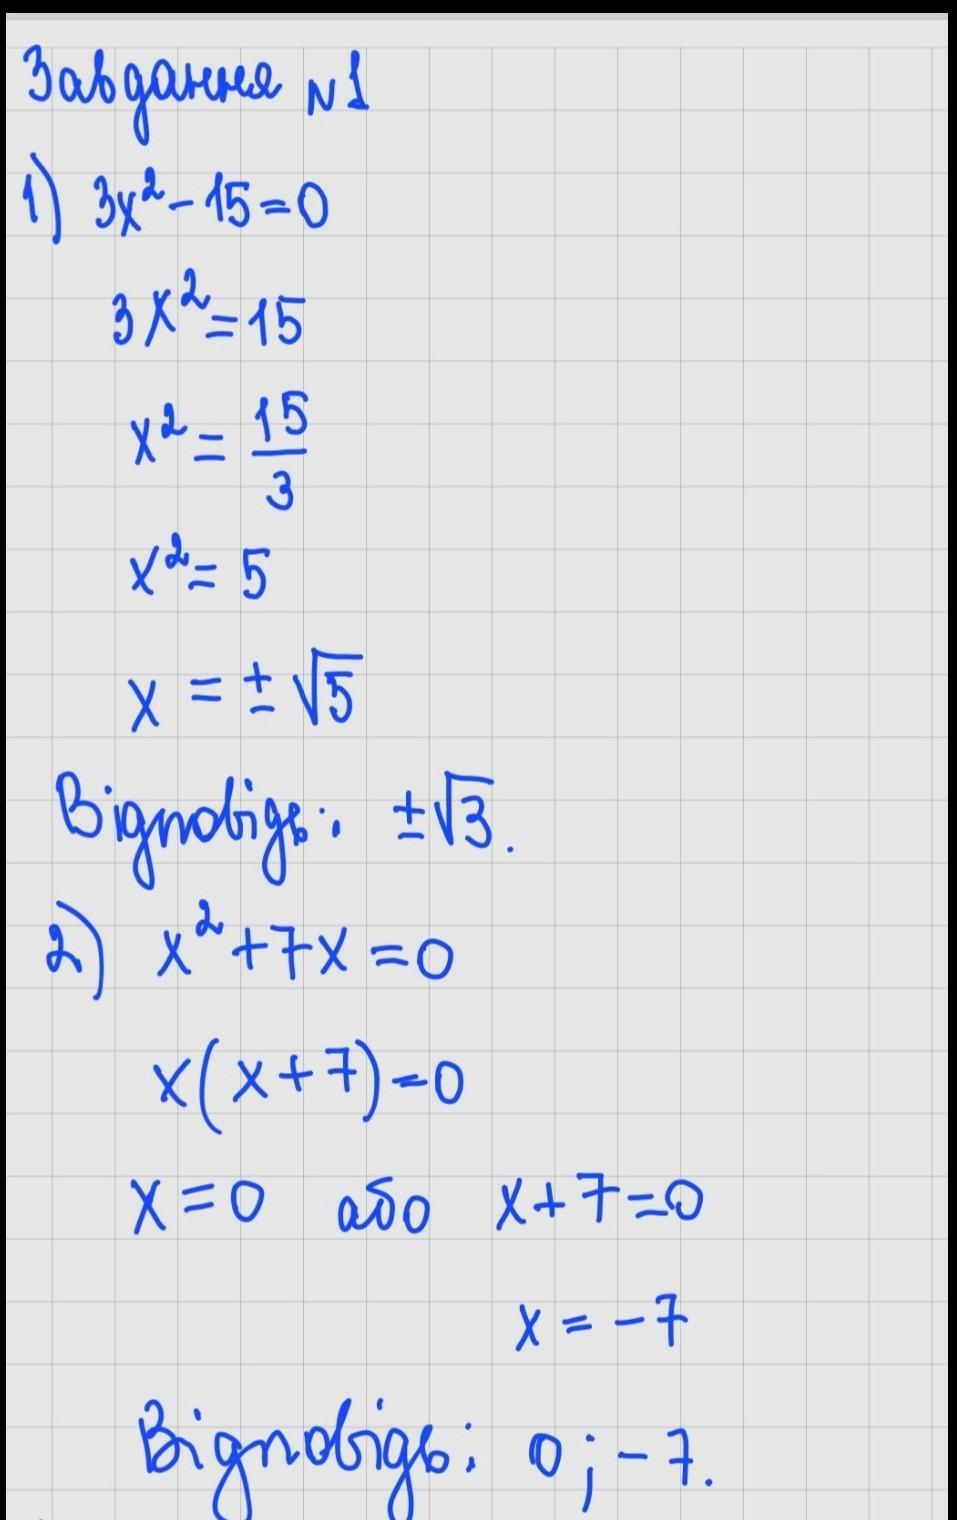 Завдання №1
1) 3x² - 15 = 0
3x² = 15
x² = 15/3
x² = 5
x = ± √5
Відповідь: ±√3.
2) x² + 7x = 0
x(x + 7) = 0
x = 0 або x + 7 = 0
x = - 7
Відповідь: 0; - 7.